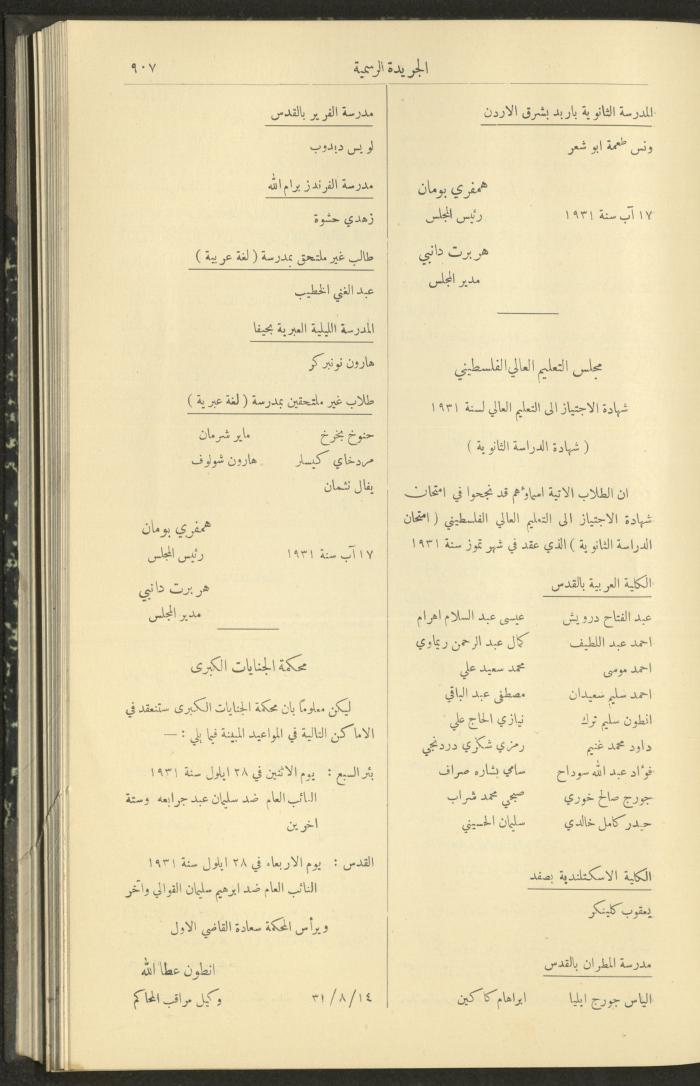 الجريدة الرسمية
٩٠٧
المدرسة الثانوية باربد بشرق الاردن
ونس طعمة ابو شعر
همفري بومان
١٧ آب سنة ١٩٣١
رئيس المجلس
هربرت دانبي
مدير المجلس
مجلس التعليم العالي الفلسطيني
شهادة الاجتياز الى التعليم العالي لسنة ١٩٣١
( شهادة الدراسة الثانوية )
ان الطلاب الاتية اسماؤهم قد نجحوا في امتحان
شهادة الاجتياز الى التعليم العالي الفلسطيني ( امتحان
الدراسة الثانوية ) الذي عقد في شهر تموز سنة ١٩٣١
الكلية العربية بالقدس
عبد الفتاح درويش
عيسى عبد السلام اهرام
احمد عبد اللطيف
كمال عبد الرحمن ريماوي
احمد موسى
محمد سعيد علي
احمد سليم سعيدان
مصطفى عبد الباقي
انطون سليم ترك
نيازي الحاج علي
داود محمد غنيم
رمزي شكري دردنجي
فؤاد عبد الله سوداح
سامي بشاره صراف
جورج صالح خوري
صبحي محمد شراب
حيدر كامل خالدي
سليمان الحسيني
الكلية الاسكتلندية بصفد
يعقوب كلينكر
مدرسة المطران بالقدس
الياس جورج ايليا
ابراهام كاكين
مدرسة الفرير بالقدس
لويس ديدوب
مدرسة الفرندز برام الله
زهدي حشوة
طالب غير ملتحق بمدرسة ( لغة عربية )
عبد الغني الخطيب
المدرسة الليلية العبرية بحيفا
هارون نونبركر
طلاب غير ملتحقين بمدرسة ( لغة عبرية )
حنوخ بخرخ
ماير شرمان
مردخاي كيسلر
هارون شولوف
يفال نثمان
همفري بومان
١٧ آب سنة ١٩٣١
رئيس المجلس
هربرت دانبي
مدير المجلس
محكمة الجنايات الكبرى
ليكن معلوماً بان محكمة الجنايات الكبرى ستنعقد في
الاماكن التالية في المواعيد المبينة فيما يلي : —
بئر السبع : يوم الاثنين في ٢٨ ايلول سنة ١٩٣١
النائب العام ضد سليمان عبد جرابعه وستة
اخرين
القدس : يوم الاربعاء في ٢٨ ايلول سنة ١٩٣١
النائب العام ضد ابرهيم سليمان القوالي وآخر
ويرأس المحكمة سعادة القاضي الاول
انطون عطا الله
٣١/٨/١٤
وكيل مراقب المحاكم